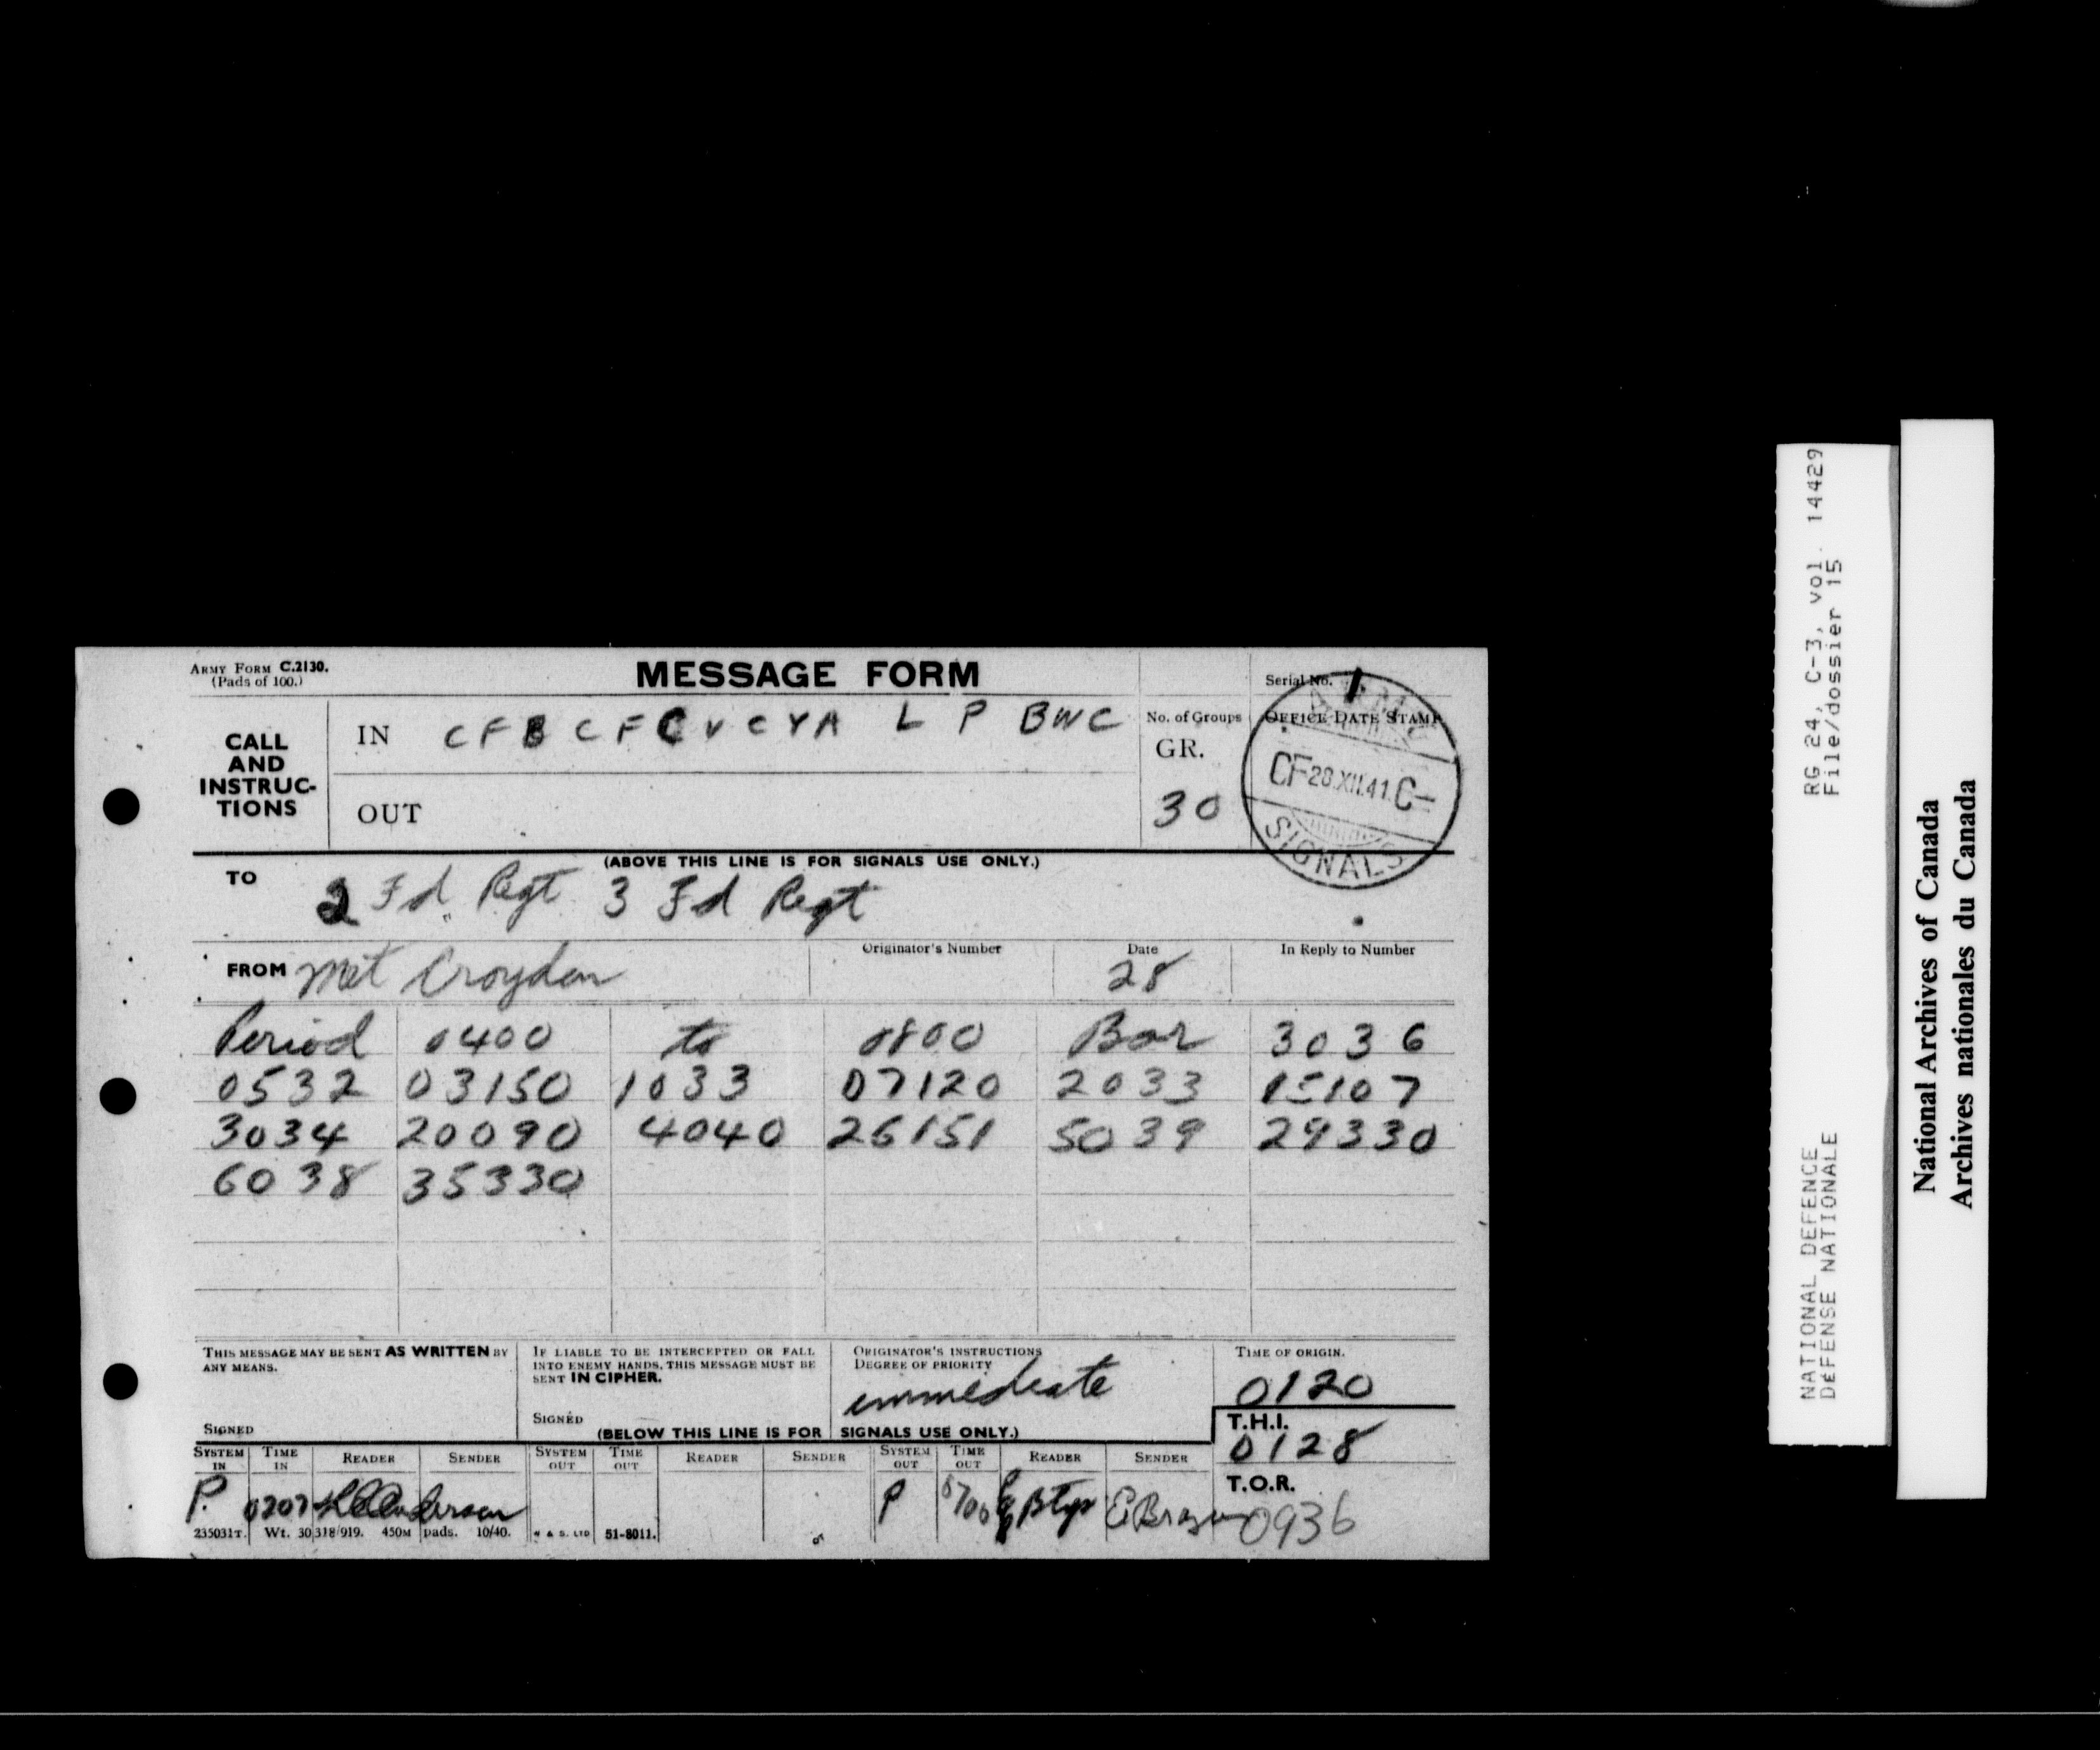 ARMY FORM C.2130.
(Pads of 100.)
MESSAGE FORM
Serial No. 1
CALL
AND
INSTRUC-
TIONS
IN CFB CFC V CYA L P BWC
No. of Groups
GR.
30
OFFICE DATE STAMP
CF 28.XII.41 C
SIGNALS
OUT
(ABOVE THIS LINE IS FOR SIGNALS USE ONLY.)
TO 2 Fd Regt 3 Fd Regt
FROM Met Croydon
Originator's Number
Date
28
In Reply to Number
Period 0400 to 0800 Bar 3036
0532 03150 1033 07120 2033 15107
3034 20090 4040 26151 5039 29330
6038 35330
THIS MESSAGE MAY BE SENT AS WRITTEN BY
ANY MEANS.
SIGNED
IF LIABLE TO BE INTERCEPTED OR FALL
INTO ENEMY HANDS, THIS MESSAGE MUST BE
SENT IN CIPHER.
SIGNED
ORIGINATOR'S INSTRUCTIONS
DEGREE OF PRIORITY
immediate
TIME OF ORIGIN.
0120
(BELOW THIS LINE IS FOR SIGNALS USE ONLY.)
T.H.I.
0128
SYSTEM IN TIME IN READER SENDER SYSTEM OUT TIME OUT READER SENDER SYSTEM OUT TIME OUT READER SENDER
T.O.R.
0936
P. 0207 Anderson P
235031T. Wt. 30318/919. 450M pads. 10/40. 51-8011.
RG 24, C-3, vol. 14429
File/dossier 15
NATIONAL DEFENCE
DEFENSE NATIONALE
National Archives of Canada
Archives nationales du Canada